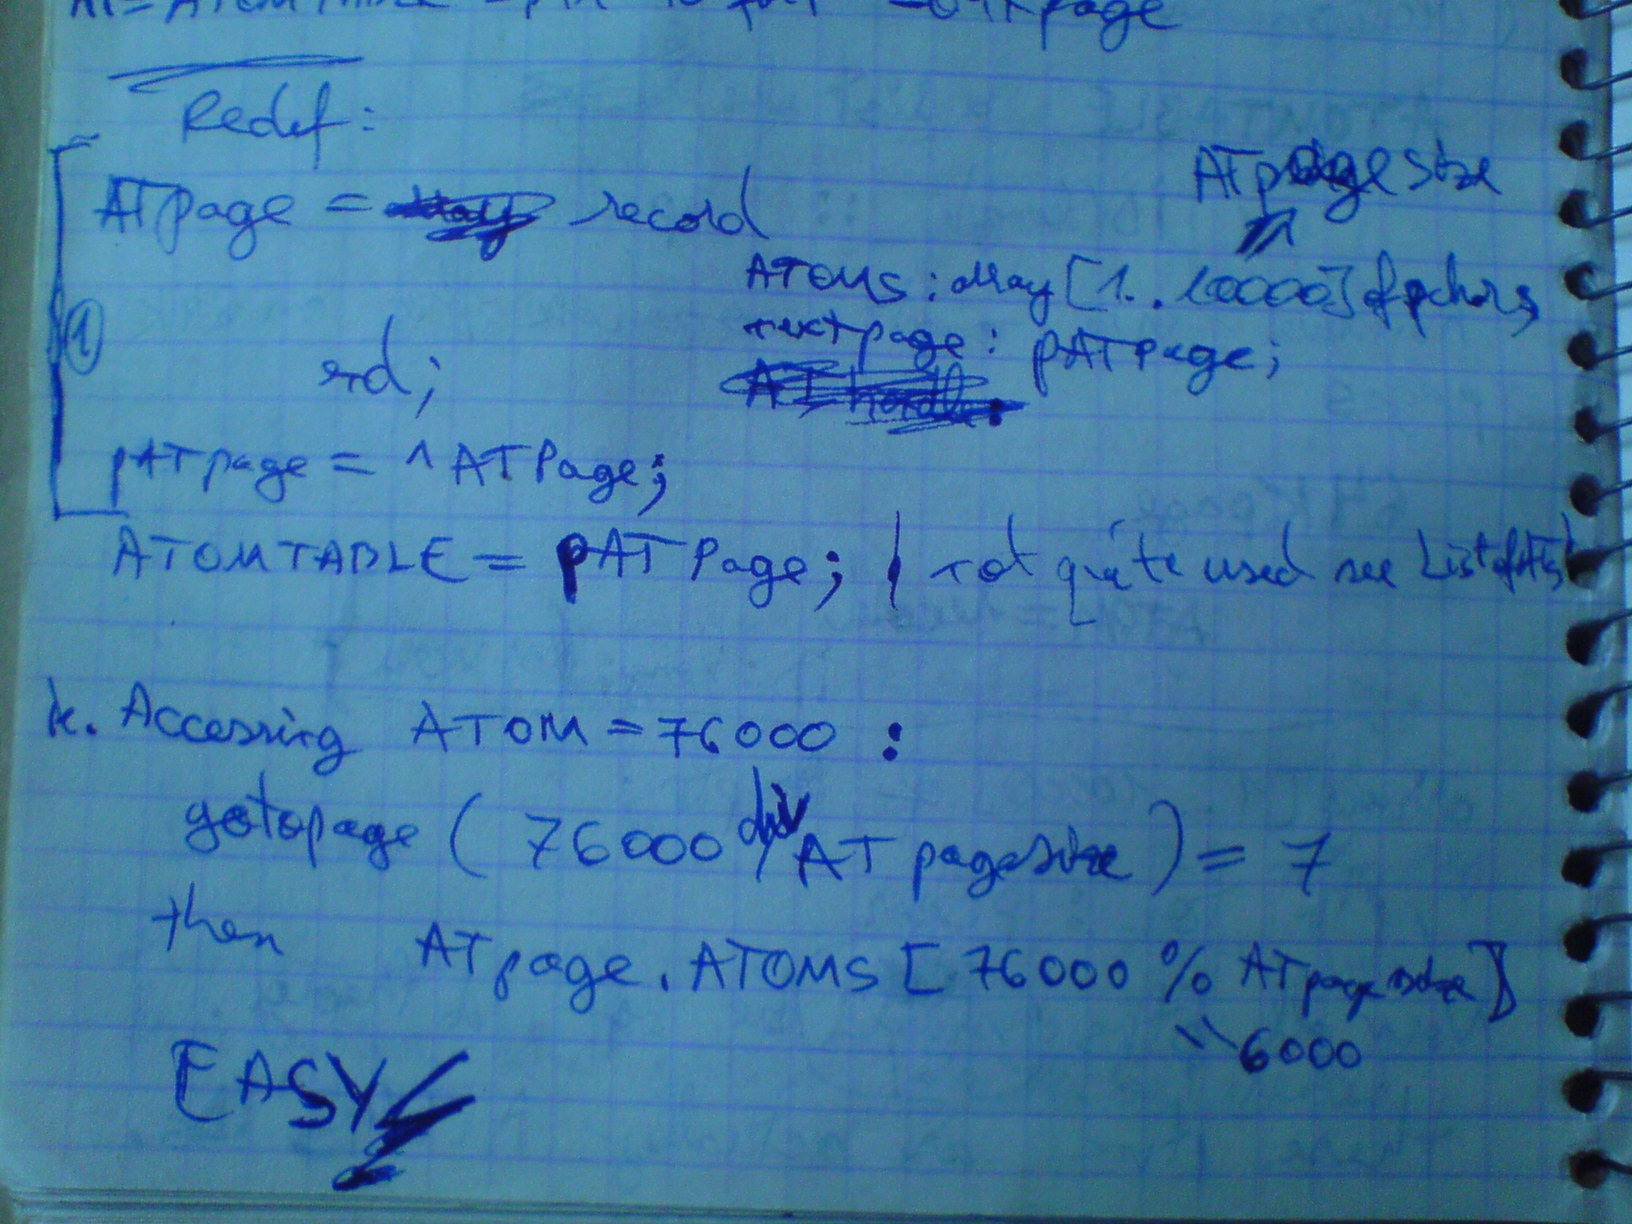 page
Redef:
ATpagesize
ATpage = record
ATOMS: array [1..10000] of pchar;
nextpage: pATpage;
end;
①
pATpage = ^ATPage;
ATOMTABLE = pATPage; { not quite used see ListofATs}
k. Accessing ATOM = 76000 :
gotopage ( 76000 div ATpagesize ) = 7
then ATpage.ATOMS [ 76000 % ATpagesize ]
6000
EASY